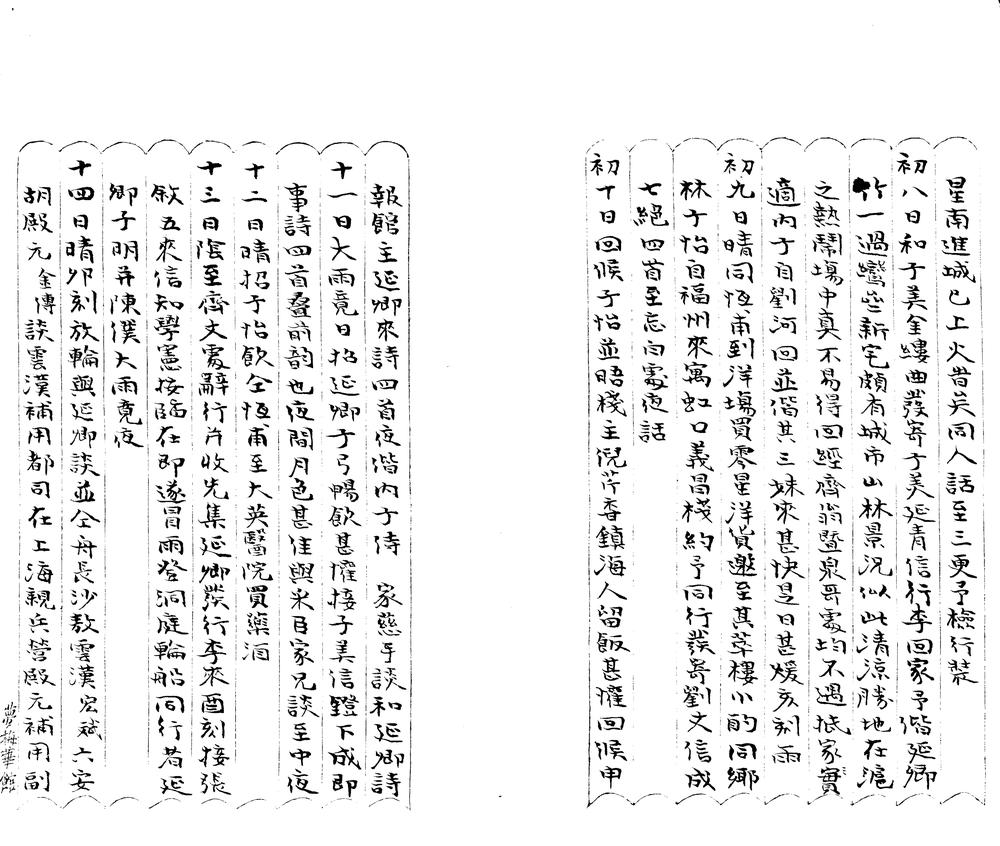 星南進城已上火昔矣同人話至三更予檢行裝
初八日和子美金縷曲發寄子美延青信行李回家予偕延卿
竹一過蠻些新宅頗有城市山林景況似此清涼勝地在滬
之熱鬧場中真不易得回經齊翁暨泉哥處均不遇抵家實
適內子自劉河回並偕其三妹來甚快是日甚煖亥刻雨
初九日晴同恆甫到洋場買零星洋貨邀至其萃樓小酌同鄉
林子怡自福州來寓虹口義昌棧約予同行發寄劉文信成
七絕四首至忘向處夜話
初十日回候子怡並晤棧主倪芹香鎮海人留飯甚懽回候申
報館主延卿來詩四首夜偕內子侍 家慈手談和延卿詩
十一日大雨竟日招延卿子弓暢飲甚懽接子美信鐙下成即
事詩四首疊前韵也夜間月色甚佳與采臣家兄談至中夜
十二日晴招子怡飲仝恆甫至大英醫院買藥酒
十三日陰至齊文處辭行并收先集延卿發行李來酉刻接張
敘五來信知學憲按臨在即遂冒雨登洞庭輪船同行者延
卿子明并陳僕大雨竟夜
十四日晴卯刻放輪與延卿談並仝舟長沙敖雲漢宏斌六安
胡殿元金傳談雲漢補用都司在上海親兵營殿元補用副
夢梅華館